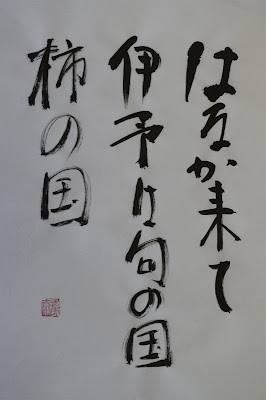 はなか来て
伊予は句の国
柿の国